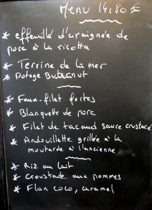 Menu 14.80 €
* effeuillé d'araignée de
porc à la ricotta
* Terrine de la mer
* Potage Dubarry
* Faux-filet frites
* Blanquette de porc
* Filet de tacaud sauce crustacé
* Andouillette grillée à la
moutarde à l'ancienne
* Riz au lait
* Croustade aux pommes
* Flan coco, caramel